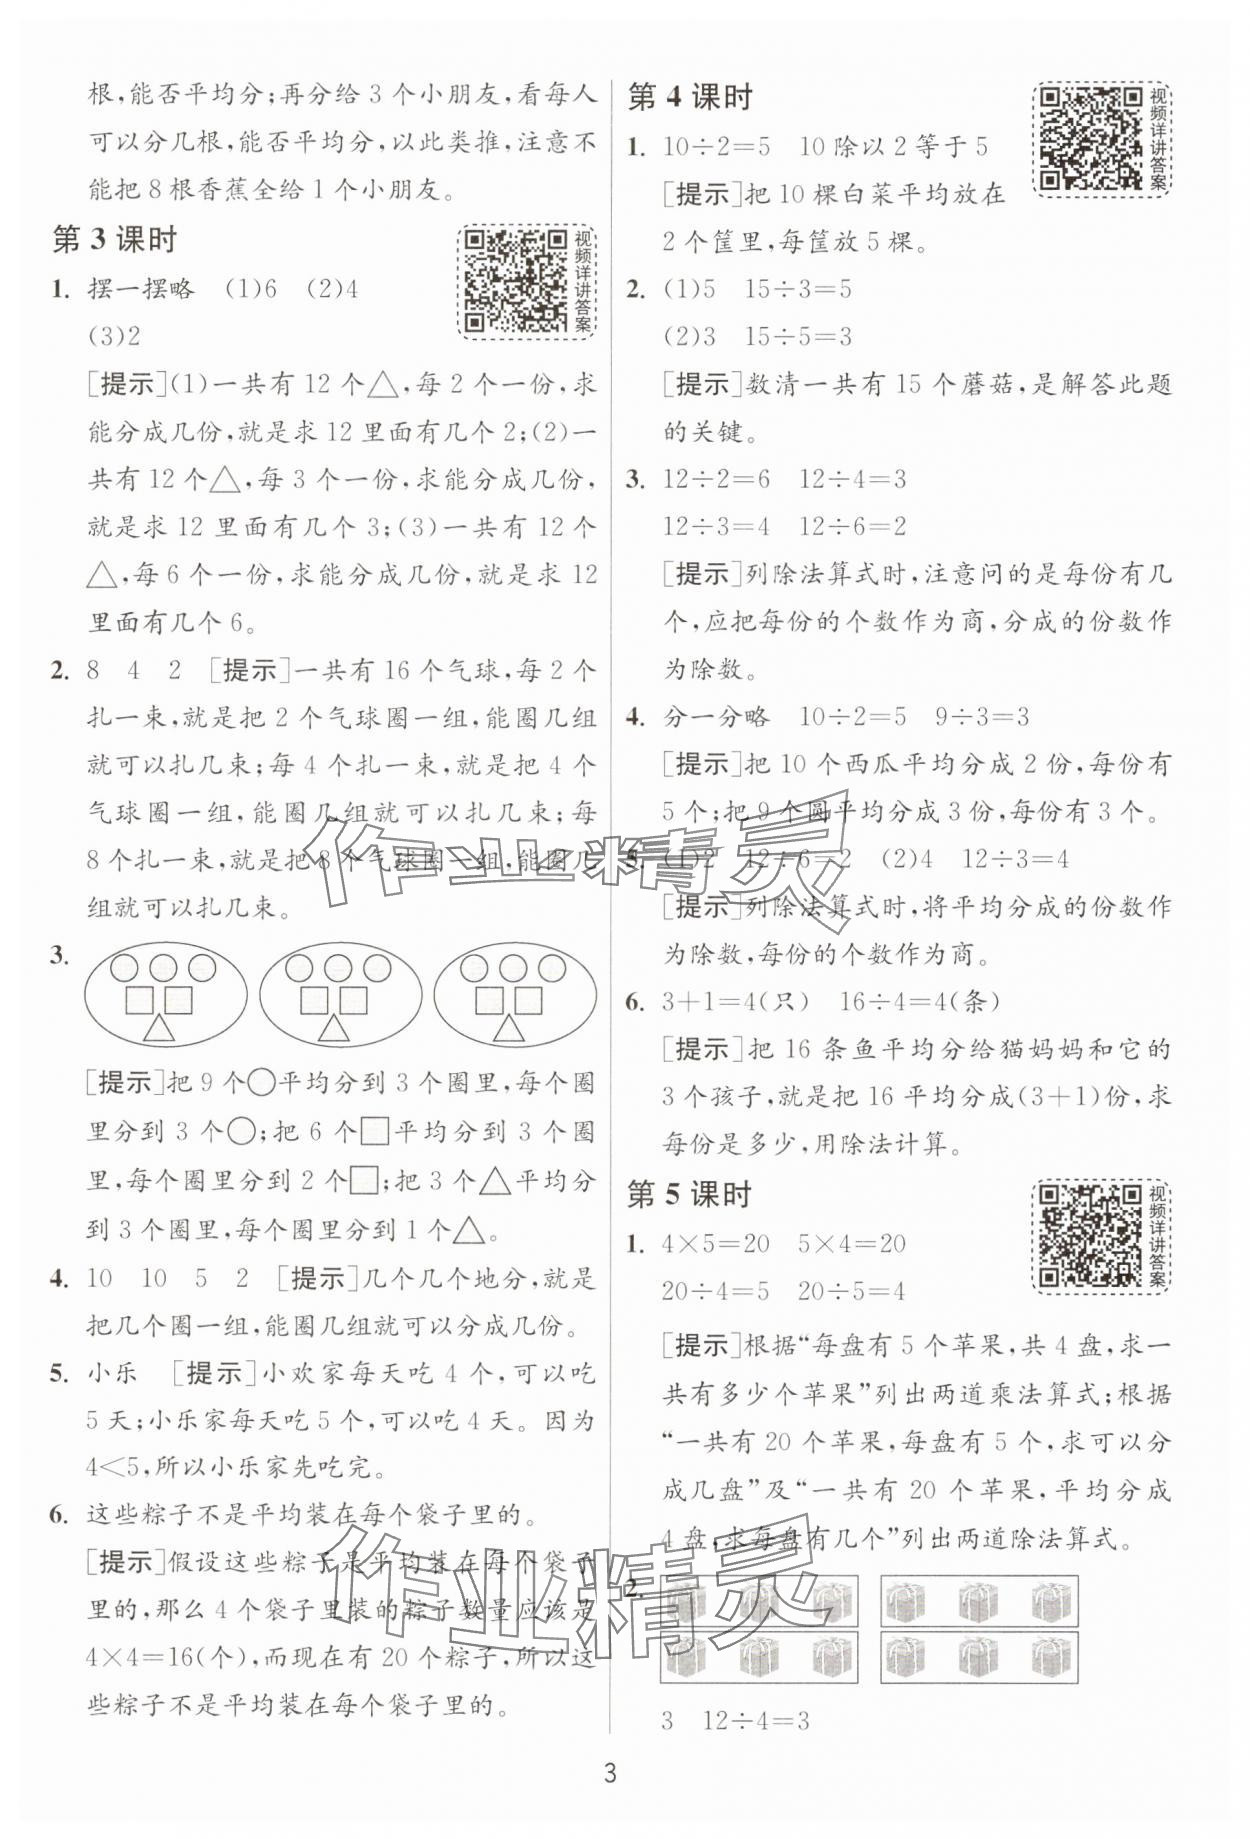 根,能否平均分;再分给 3 个小朋友,看每人
可以分几根,能否平均分,以此类推,注意不
能把 8 根香蕉全给 1 个小朋友。
第 3 课时
视频详讲答案
1. 摆一摆略 (1)6 (2)4
(3)2
[提示](1)一共有 12 个△,每 2 个一份,求
能分成几份,就是求 12 里面有几个 2;(2)一
共有 12 个△,每 3 个一份,求能分成几份,
就是求 12 里面有几个 3;(3)一共有 12 个
△,每 6 个一份,求能分成几份,就是求 12
里面有几个 6。
2. 8 4 2 [提示]一共有 16 个气球,每 2 个
扎一束,就是把 2 个气球圈一组,能圈几组
就可以扎几束;每 4 个扎一束,就是把 4 个
气球圈一组,能圈几组就可以扎几束;每
8 个扎一束,就是把 8 个气球圈一组,能圈几
组就可以扎几束。
3.
[提示]把 9 个○平均分到 3 个圈里,每个圈
里分到 3 个○;把 6 个□平均分到 3 个圈
里,每个圈里分到 2 个□;把 3 个△平均分
到 3 个圈里,每个圈里分到 1 个△。
4. 10 10 5 2 [提示]几个几个地分,就是
把几个圈一组,能圈几组就可以分成几份。
5. 小乐 [提示]小欢家每天吃 4 个,可以吃
5 天;小乐家每天吃 5 个,可以吃 4 天。因为
4<5,所以小乐家先吃完。
6. 这些粽子不是平均装在每个袋子里的。
[提示]假设这些粽子是平均装在每个袋子
里的,那么 4 个袋子里装的粽子数量应该是
4×4=16(个),而现在有 20 个粽子,所以这
些粽子不是平均装在每个袋子里的。
第 4 课时
视频详讲答案
1. 10÷2=5 10 除以 2 等于 5
[提示]把 10 棵白菜平均放在
2 个筐里,每筐放 5 棵。
2. (1)5 15÷3=5
(2)3 15÷5=3
[提示]数清一共有 15 个蘑菇,是解答此题
的关键。
3. 12÷2=6 12÷4=3
12÷3=4 12÷6=2
[提示]列除法算式时,注意问的是每份有几
个,应把每份的个数作为商,分成的份数作
为除数。
4. 分一分略 10÷2=5 9÷3=3
[提示]把 10 个西瓜平均分成 2 份,每份有
5 个;把 9 个圆平均分成 3 份,每份有 3 个。
5. (1)2 12÷6=2 (2)4 12÷3=4
[提示]列除法算式时,将平均分成的份数作
为除数,每份的个数作为商。
6. 3+1=4(只) 16÷4=4(条)
[提示]把 16 条鱼平均分给猫妈妈和它的
3 个孩子,就是把 16 平均分成(3+1)份,求
每份是多少,用除法计算。
第 5 课时
视频详讲答案
1. 4×5=20 5×4=20
20÷4=5 20÷5=4
[提示]根据“每盘有 5 个苹果,共 4 盘,求一
共有多少个苹果”列出两道乘法算式;根据
“一共有 20 个苹果,每盘有 5 个,求可以分
成几盘”及“一共有 20 个苹果,平均分成
4 盘,求每盘有几个”列出两道除法算式。
2.
3 12÷4=3
作业精灵
作业精灵
3